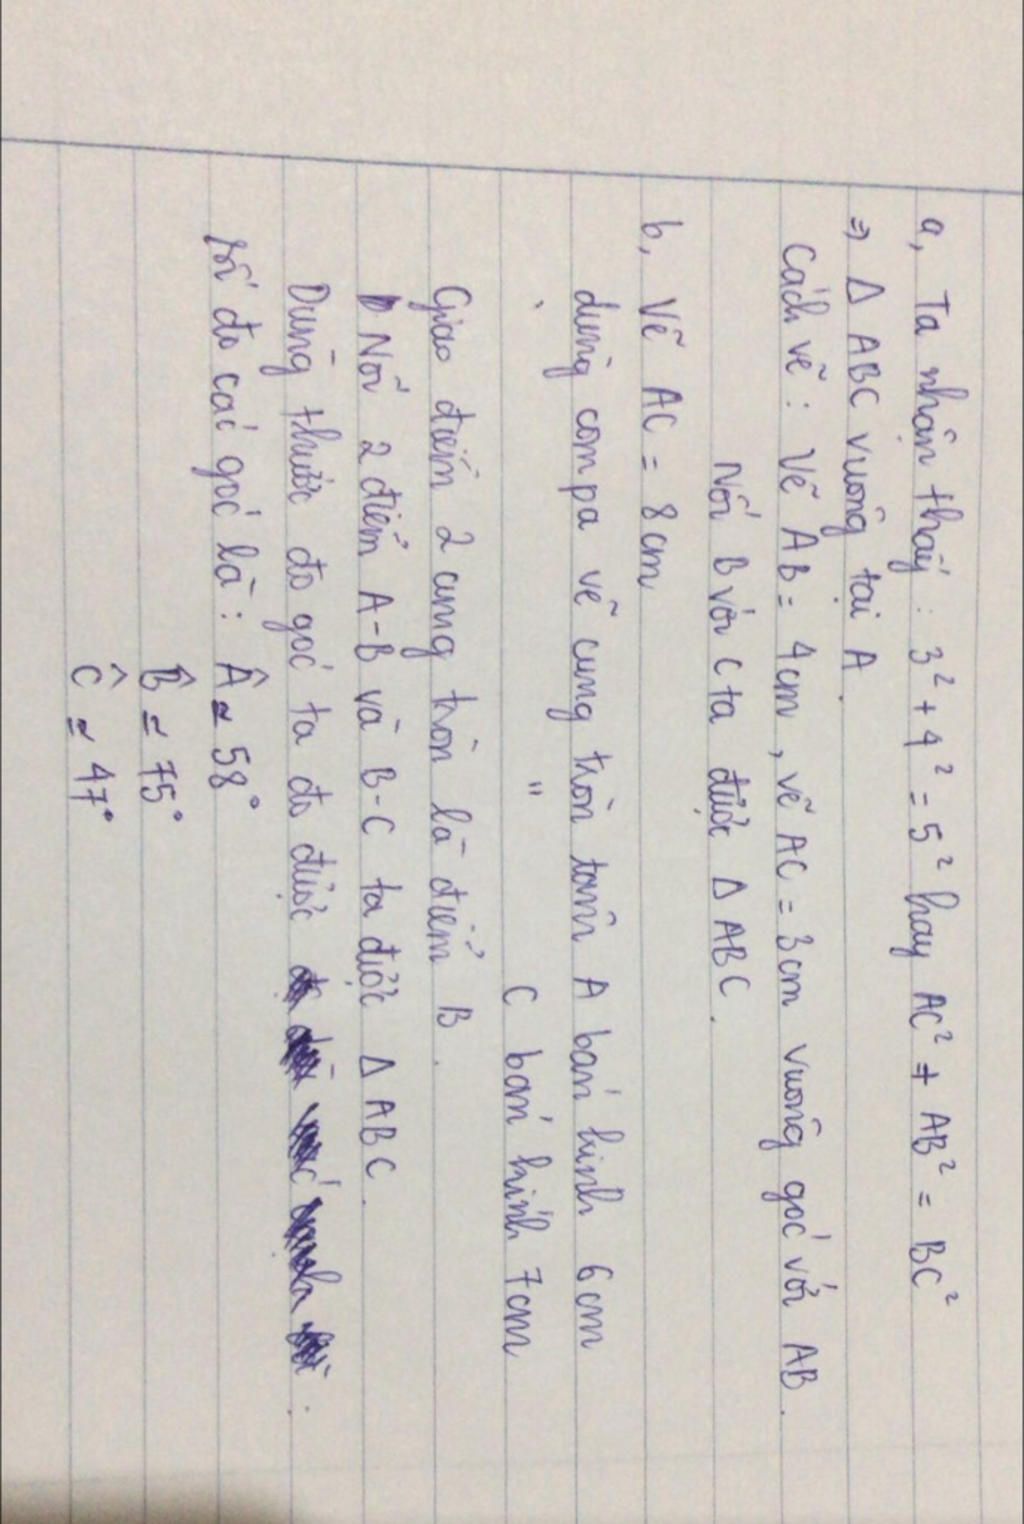 a, Ta nhận thấy : 3² + 4² = 5² hay AC² + AB² = BC²
=> Δ ABC vuông tại A.
Cách vẽ : Vẽ AB = 4cm, vẽ AC = 3cm vuông góc với AB.
Nối B với C ta được Δ ABC.
b, Vẽ AC = 8cm
dùng compa vẽ cung tròn tâm A bán kính 6cm
" C bán kính 7cm
Giao điểm 2 cung tròn là điểm B.
Nối 2 điểm A-B và B-C ta được Δ ABC.
Dùng thước đo góc ta đo được :
số đo các góc là : Â ≈ 58°
B̂ ≈ 75°
Ĉ ≈ 47°